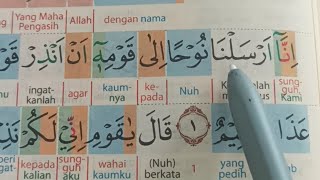 Yang Maha Pengasih Allah dengan nama
اِنَّآ اَرْسَلْنَا نُوْحًا اِلٰى قَوْمِهٖٓ اَنْ اَنْذِرْ
ingat-kanlah agar kaum-nya ke-pada Nuh sung-guh Kami
١ قَالَ يٰقَوْمِ اِنِّيْ لَكُمْ
kepada kalian sung-guh aku wahai kaumku (Nuh) berkata 1 yang pedih